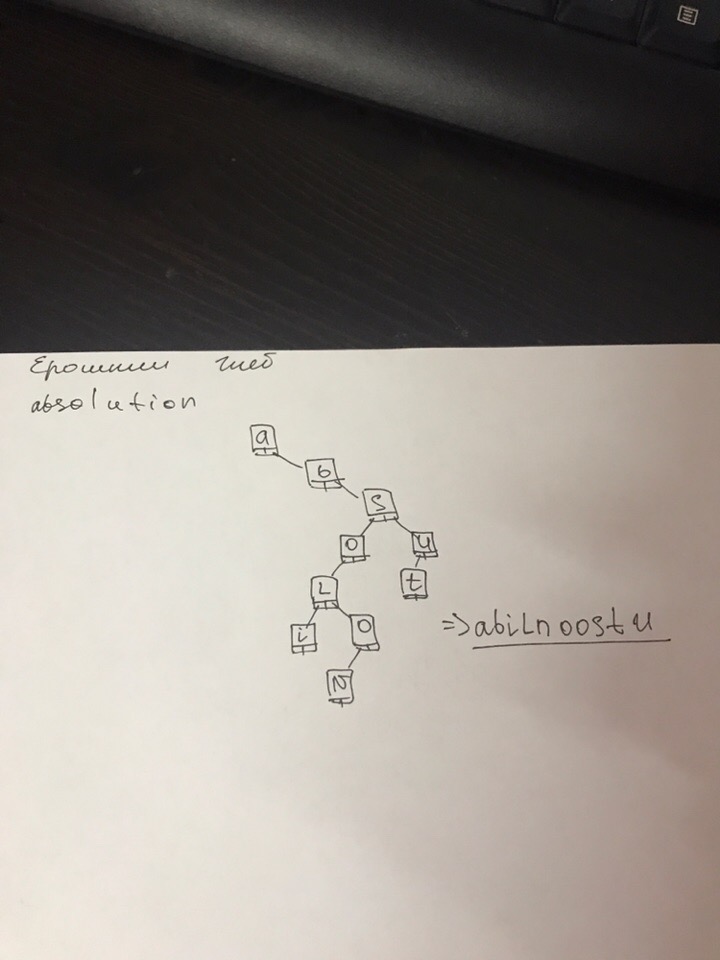 Ерошкин Глеб
absolution
a
b
s
o
u
L
t
i
o
n
=> abiLnoostu